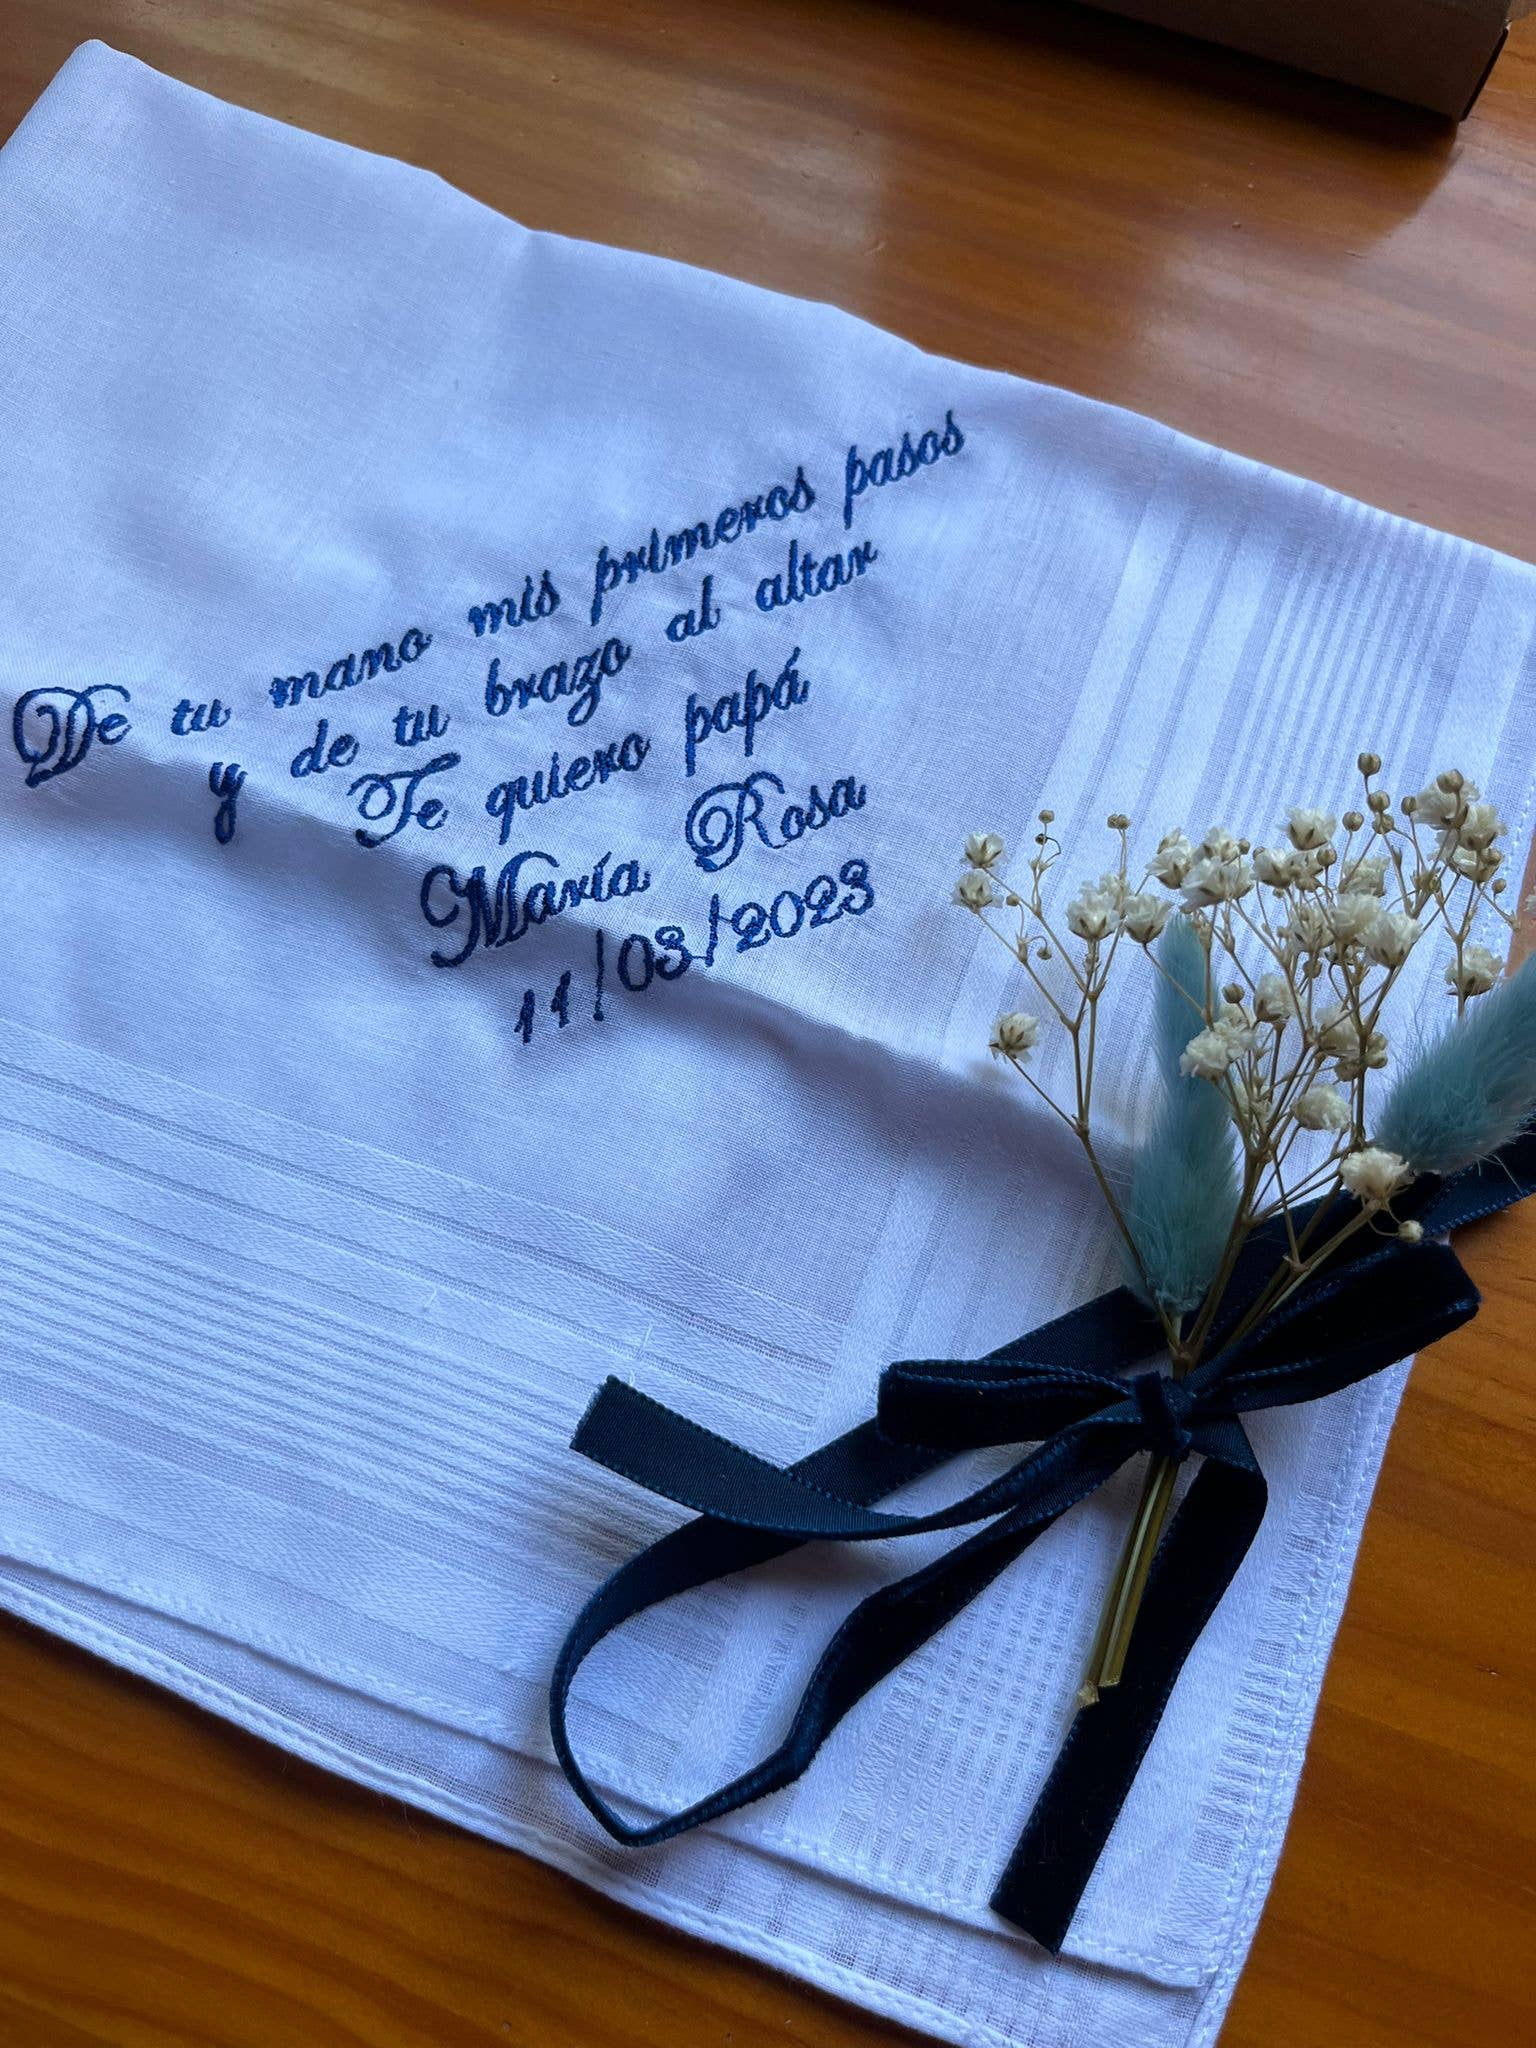 De tu mano mis primeros pasos
y de tu brazo al altar
Te quiero papá
María Rosa
11/03/2023